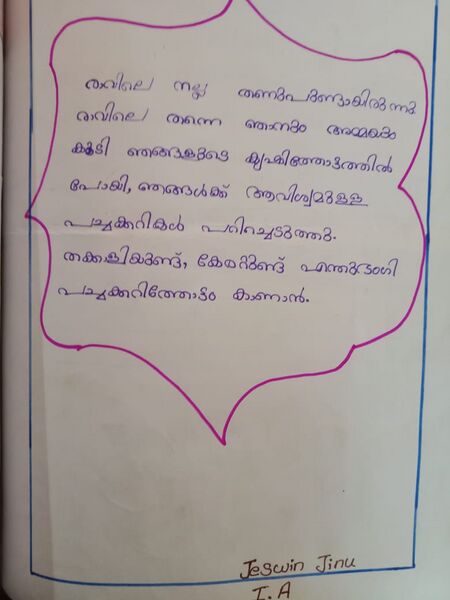 രാവിലെ നല്ല തണുപുണ്ടായിരുന്നു
രാവിലെ തന്നെ ഞാനും അമ്മയും
കൂടി ഞങ്ങളുടെ കൃഷിത്തോട്ടത്തിൽ
പോയി, ഞങ്ങൾക്ക് ആവിശ്യമുള്ള
പച്ചക്കറികൾ പറിച്ചെടുത്തു.
തക്കാളിയുണ്ട്, കേരറ്റുണ്ട് എന്തുഭംഗി
പച്ചക്കറിത്തോട്ടം കാണാൻ.
Jeswin Jinu
I.A